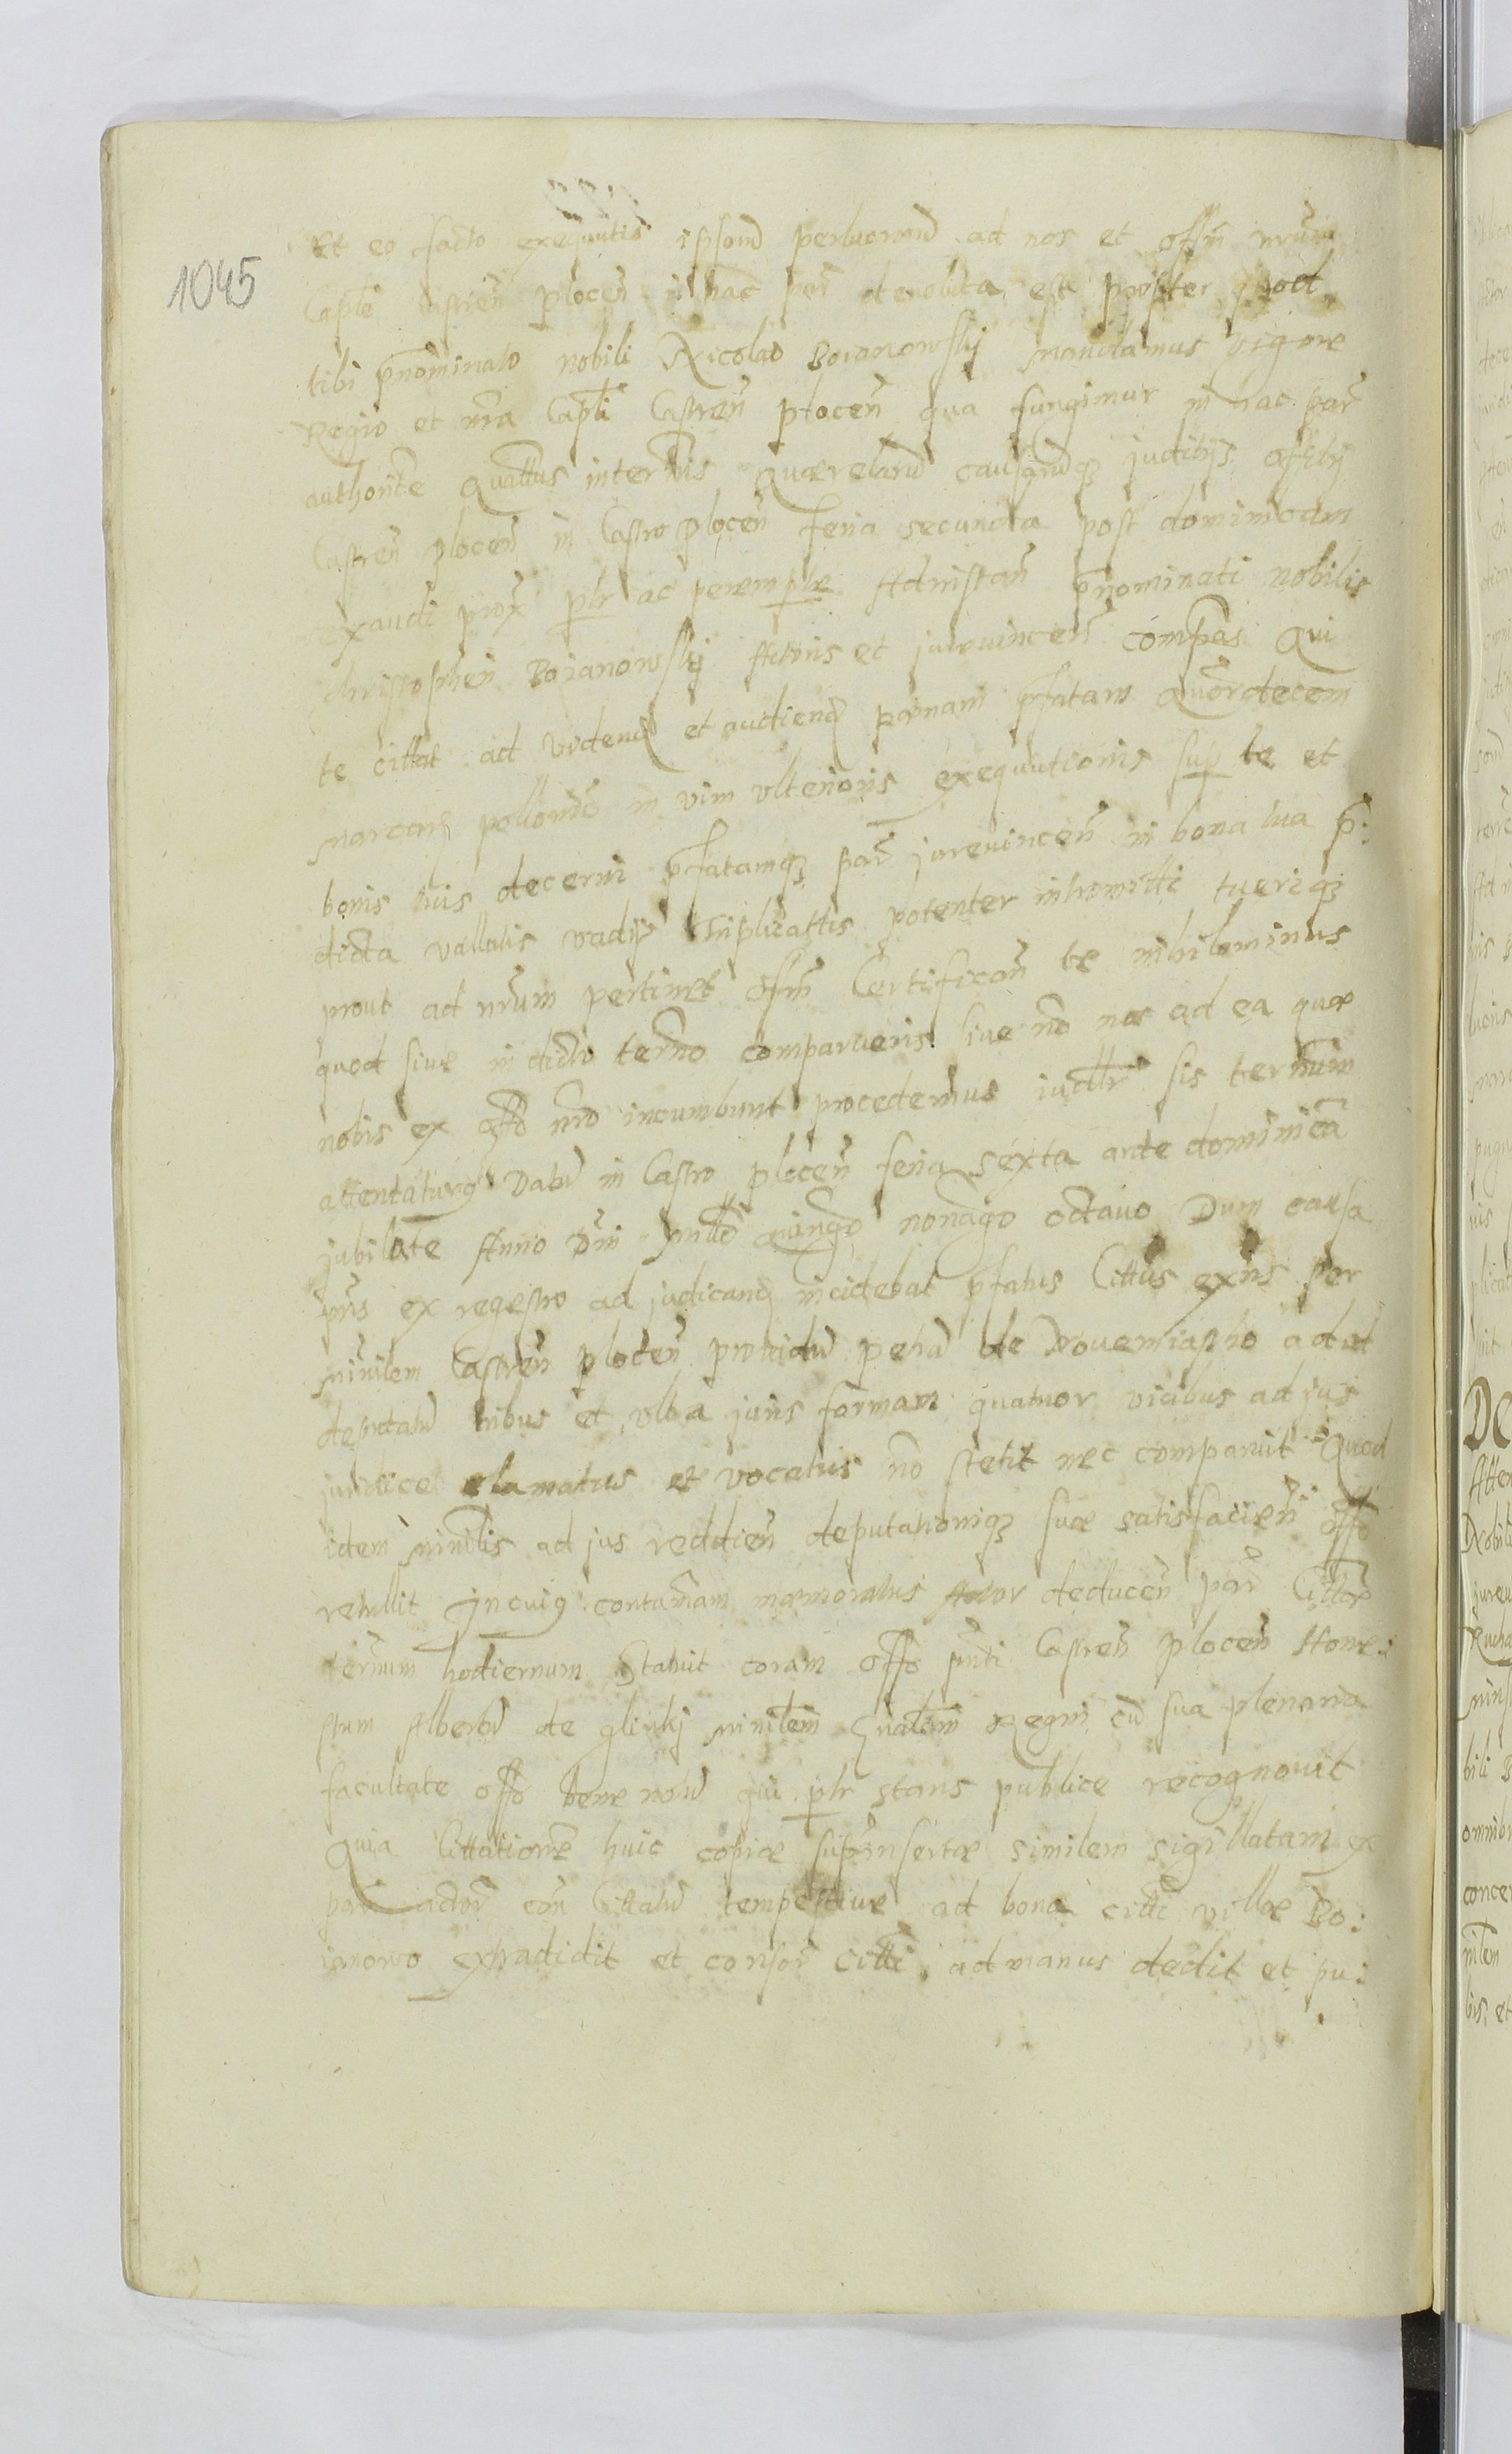 1045
Et eo facto exequutio ipsorum ad nos et offm nrum
Caple Castren plocen in hac par devoluta est propter quod
tibi pnominato nobili Nicolao Boianowskij mandamus vigore
Regio et nra Capli Castren plocen qua fungimur in hac par
authorite Quattus in termis Quaerelarum causarumq judicijs offitij
Castren plocen in Castro plocen feria secunda post dominicam
exaudi prox plr ac peremptre Ad instan pnominati nobilis
christopheri Boianowskij Actoris et jurevincen compas Qui
te cittat ad videnq et audienq paenam pfatam Quordecem
marcarq pollonic in vim ulterioris exequutionis sup te et
bonis tuis decerni pfatamq par jurevincen in bona tua p:
dicta vallatis vadijs triplicattis potenter intromitti tueriq
prout ad nrum pertinet offm Certifican te nihilominus
quod sive in dicto termo comparueris sive no nos ad ea quae
nobis ex offo nro incumbunt procedemus judlr sis termum
attentaturq Datu in Castro plocen feria sexta ante dominica
jubilate Anno Dni Millo quingo nonago octauo Dum causa
pns ex regestro ad judicanq incidebat pfatus Cittus exns per
minilem Castren plocen providu petru de Drouemiasto ad id
deputatu tribus et ultra juris formam quatuor vicibus ad jus
juridice clamatus et vocatus no stetit nec comparuit Quod
idem minilis ad jus reddien deputationiq suae satisfacien offo
retullit Jn cuiq contumam memoratus Actor deducen par Cittae
termum hodiernum Statuit coram offo pnti Castren plocen Hone:
stum Albertu de glinkj minilem gnalem Regni cu sua plenaria
facultate offo bene notu qui plr stans publice recognovit
Quia Cittatione huic copiae suprinsertae similem sigillatam ex
par actor con Cittatu tempestive ad bona citti villae Bo:
ianowo extradidit et consor citti ad manus dedit et pu: